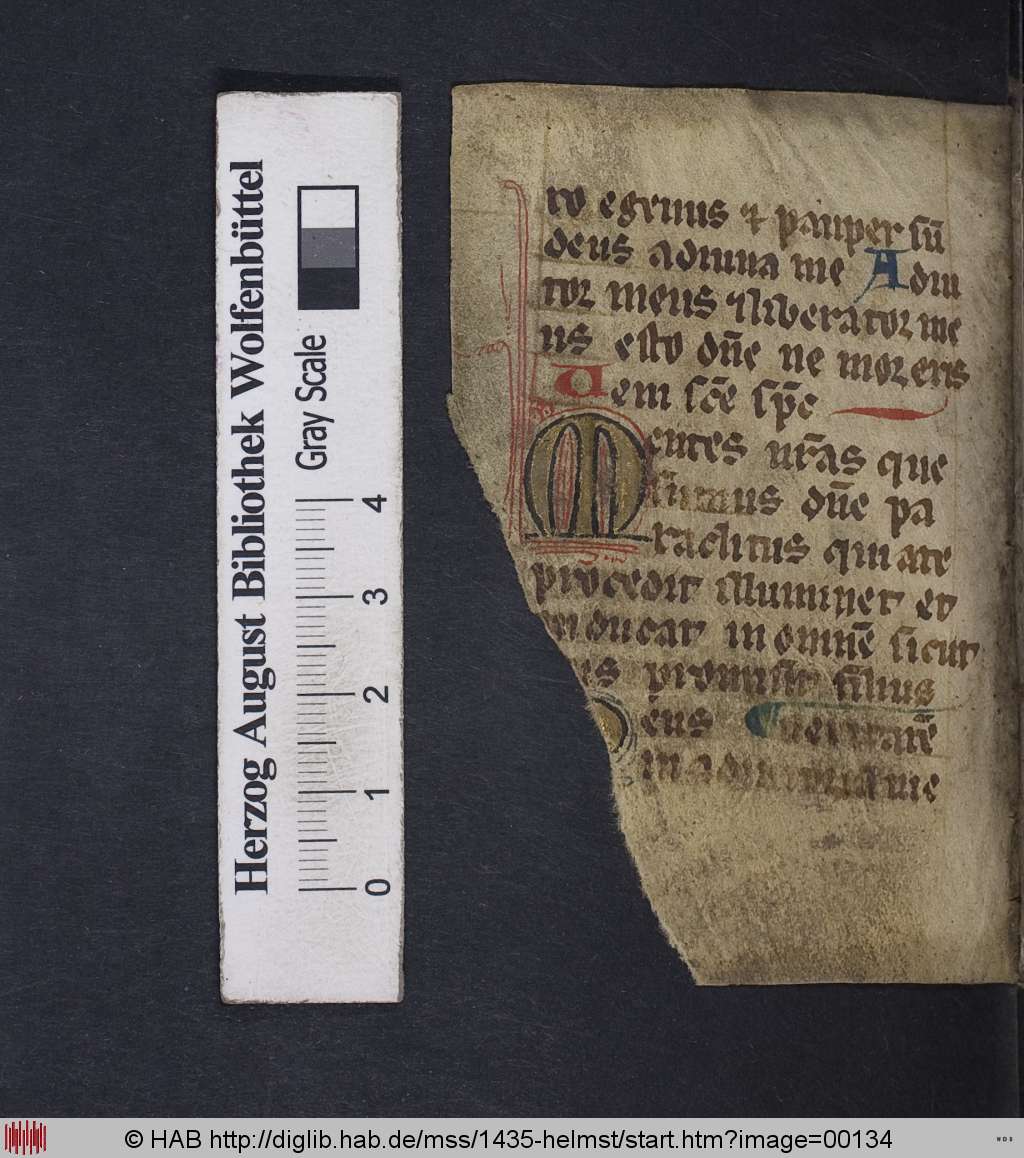 Herzog August Bibliothek Wolfenbüttel
Gray Scale
0 1 2 3 4
ro egenus ⁊ pauper sū
deus adiuua me Adiu
tor meus ⁊ liberator me
us esto dn̄e ne moreris
em sc̄e sp̄c
Mentes nr̄as que
sumus dn̄e pa
raclitus qui a te
procedit illuminet et
inducat in omnē sicut
promisit filius
Deus
in adiutoriū me
© HAB http://diglib.hab.de/mss/1435-helmst/start.htm?image=00134